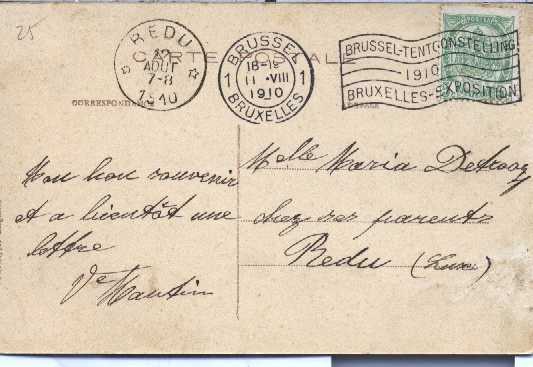 25
REDU
12
AOUT
7-8
1910
CARTE POSTALE
BRUSSEL
1 1
18-19
11 ·VIII
1910
BRUXELLES
BRUSSEL-TENTOONSTELLING
1910
BRUXELLES-EXPOSITION
CORRESPONDANCE
Mon bon souvenir
et a bientôt une
lettre
Ve Hautin
Melle Maria Detrooz
chez ses parents
Redu (Lux)